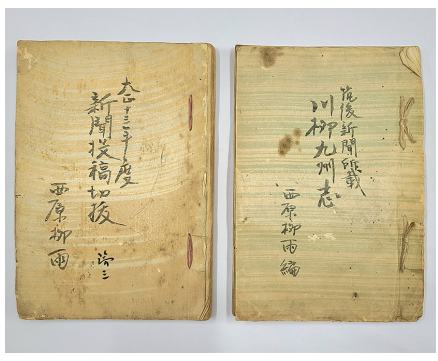 筑後新聞所載
川柳九州志
西原柳雨編
大正十三年度
新聞投稿切抜
西原柳雨